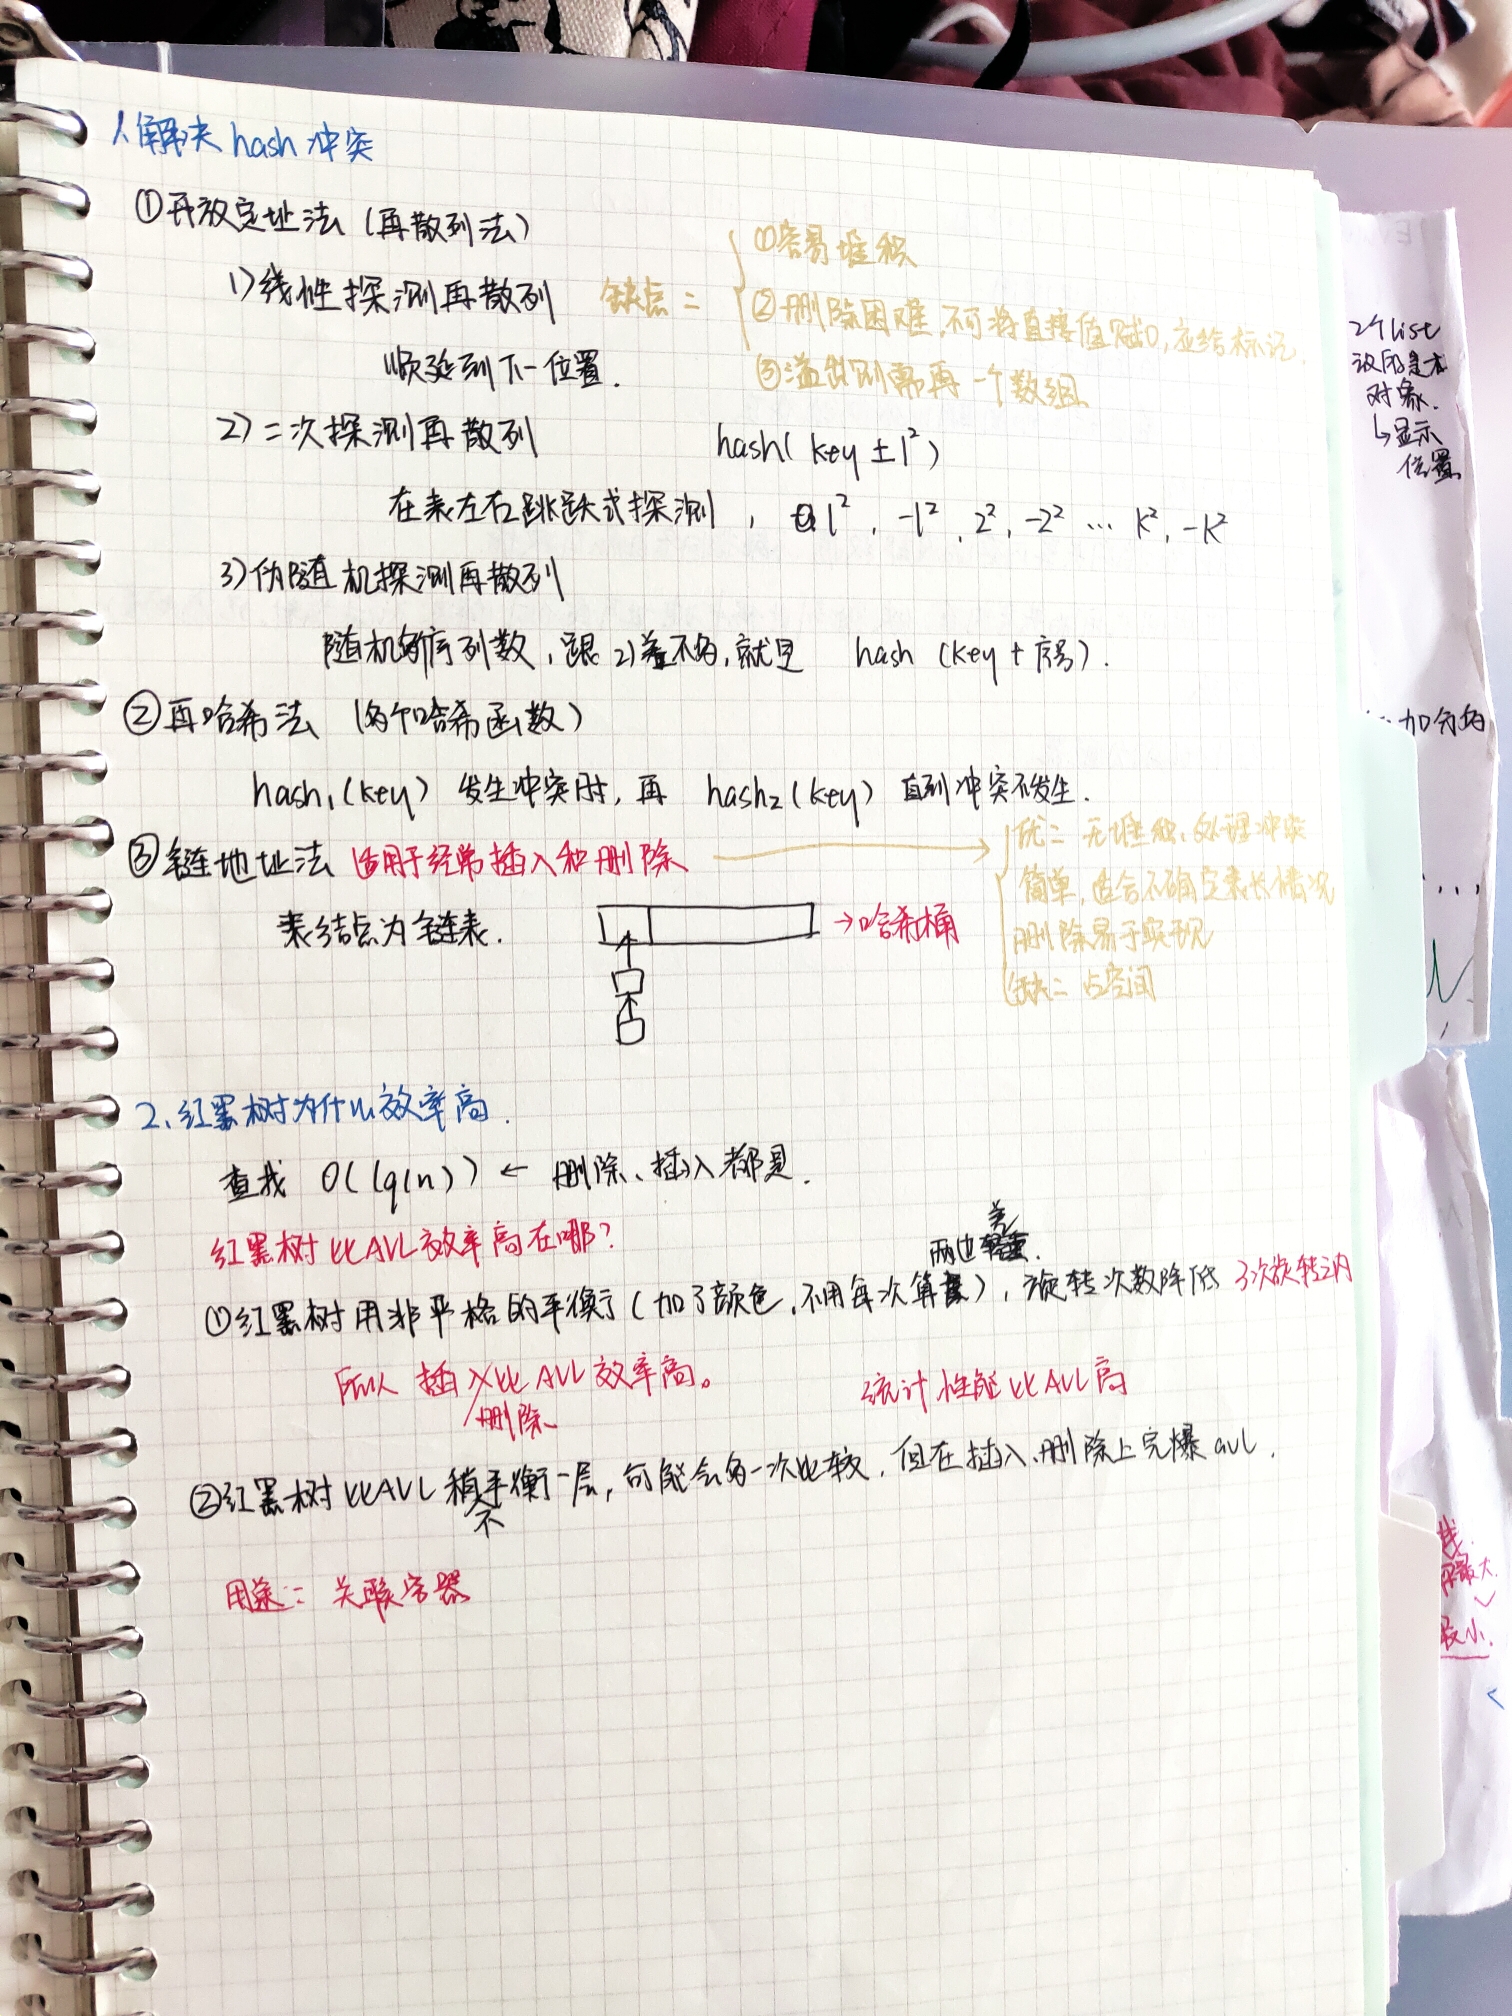 1、解决 hash 冲突
①开放定址法 (再散列法)
1)线性探测再散列
缺点：
①容易堆积
②删除困难，不可将直接值赋0，应给标记.
③溢出则需再一个数组
顺延到下一位置.
2)二次探测再散列 hash( key ± 1²)
在表左右跳跃式探测， 1², -1², 2², -2² … k², -k²
3)伪随机探测再散列
随机的序列数，跟 2)差不多，就是 hash (key + 序号).
②再哈希法 (多个哈希函数)
hash₁(key) 发生冲突时，再 hash₂(key) 直到冲突不发生.
③链地址法 适用于经常插入和删除
优：无堆积、处理冲突
简单，适合不确定表长情况
删除易于实现
缺：占空间
表结点为链表.
→哈希桶
2、红黑树为什么效率高.
查找 O( lg(n) ) ← 删除、插入都是.
红黑树比AVL效率高在哪？
①红黑树用非严格的平衡(加了颜色，不用每次算)，旋转次数降低 3次旋转之内
两边差.
所以 插入比 AVL 效率高。
删除
统计性能比AVL高
②红黑树比AVL稍不平衡一层，可能会多一次比较，但在插入、删除上完爆 avl.
用途：关联容器
2个list
对象.
↳显示
位置
...
最大.
最小.